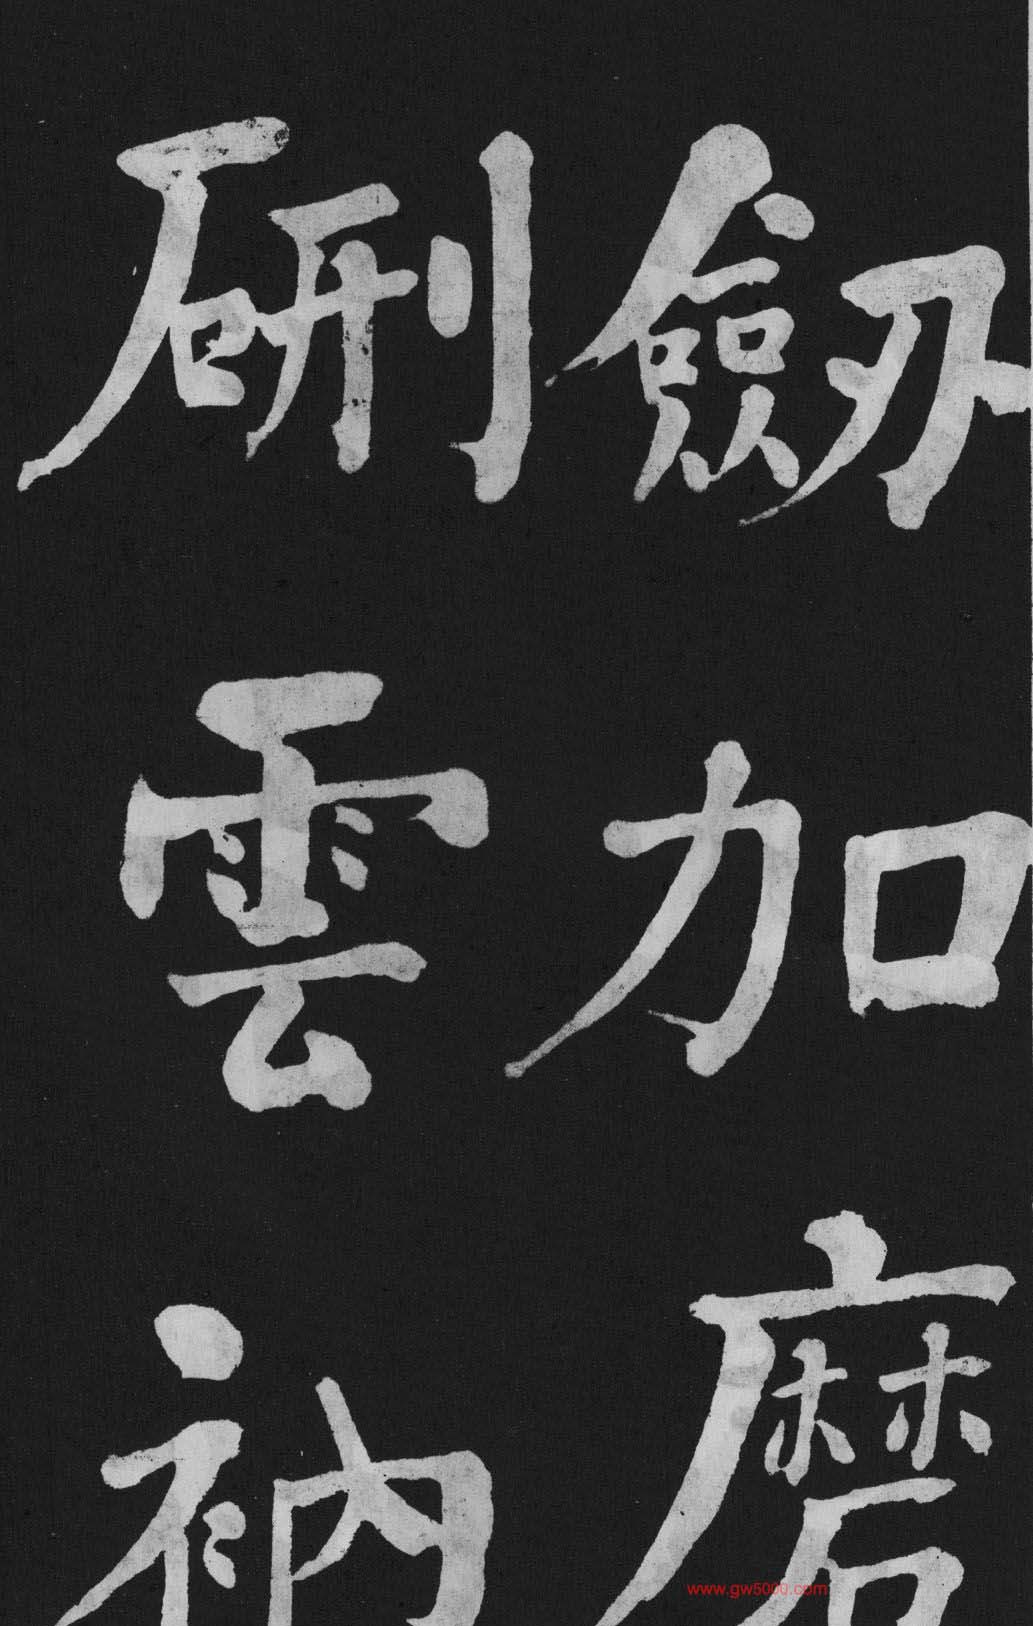 劒加磨
硎雲衲
www.gw5000.com